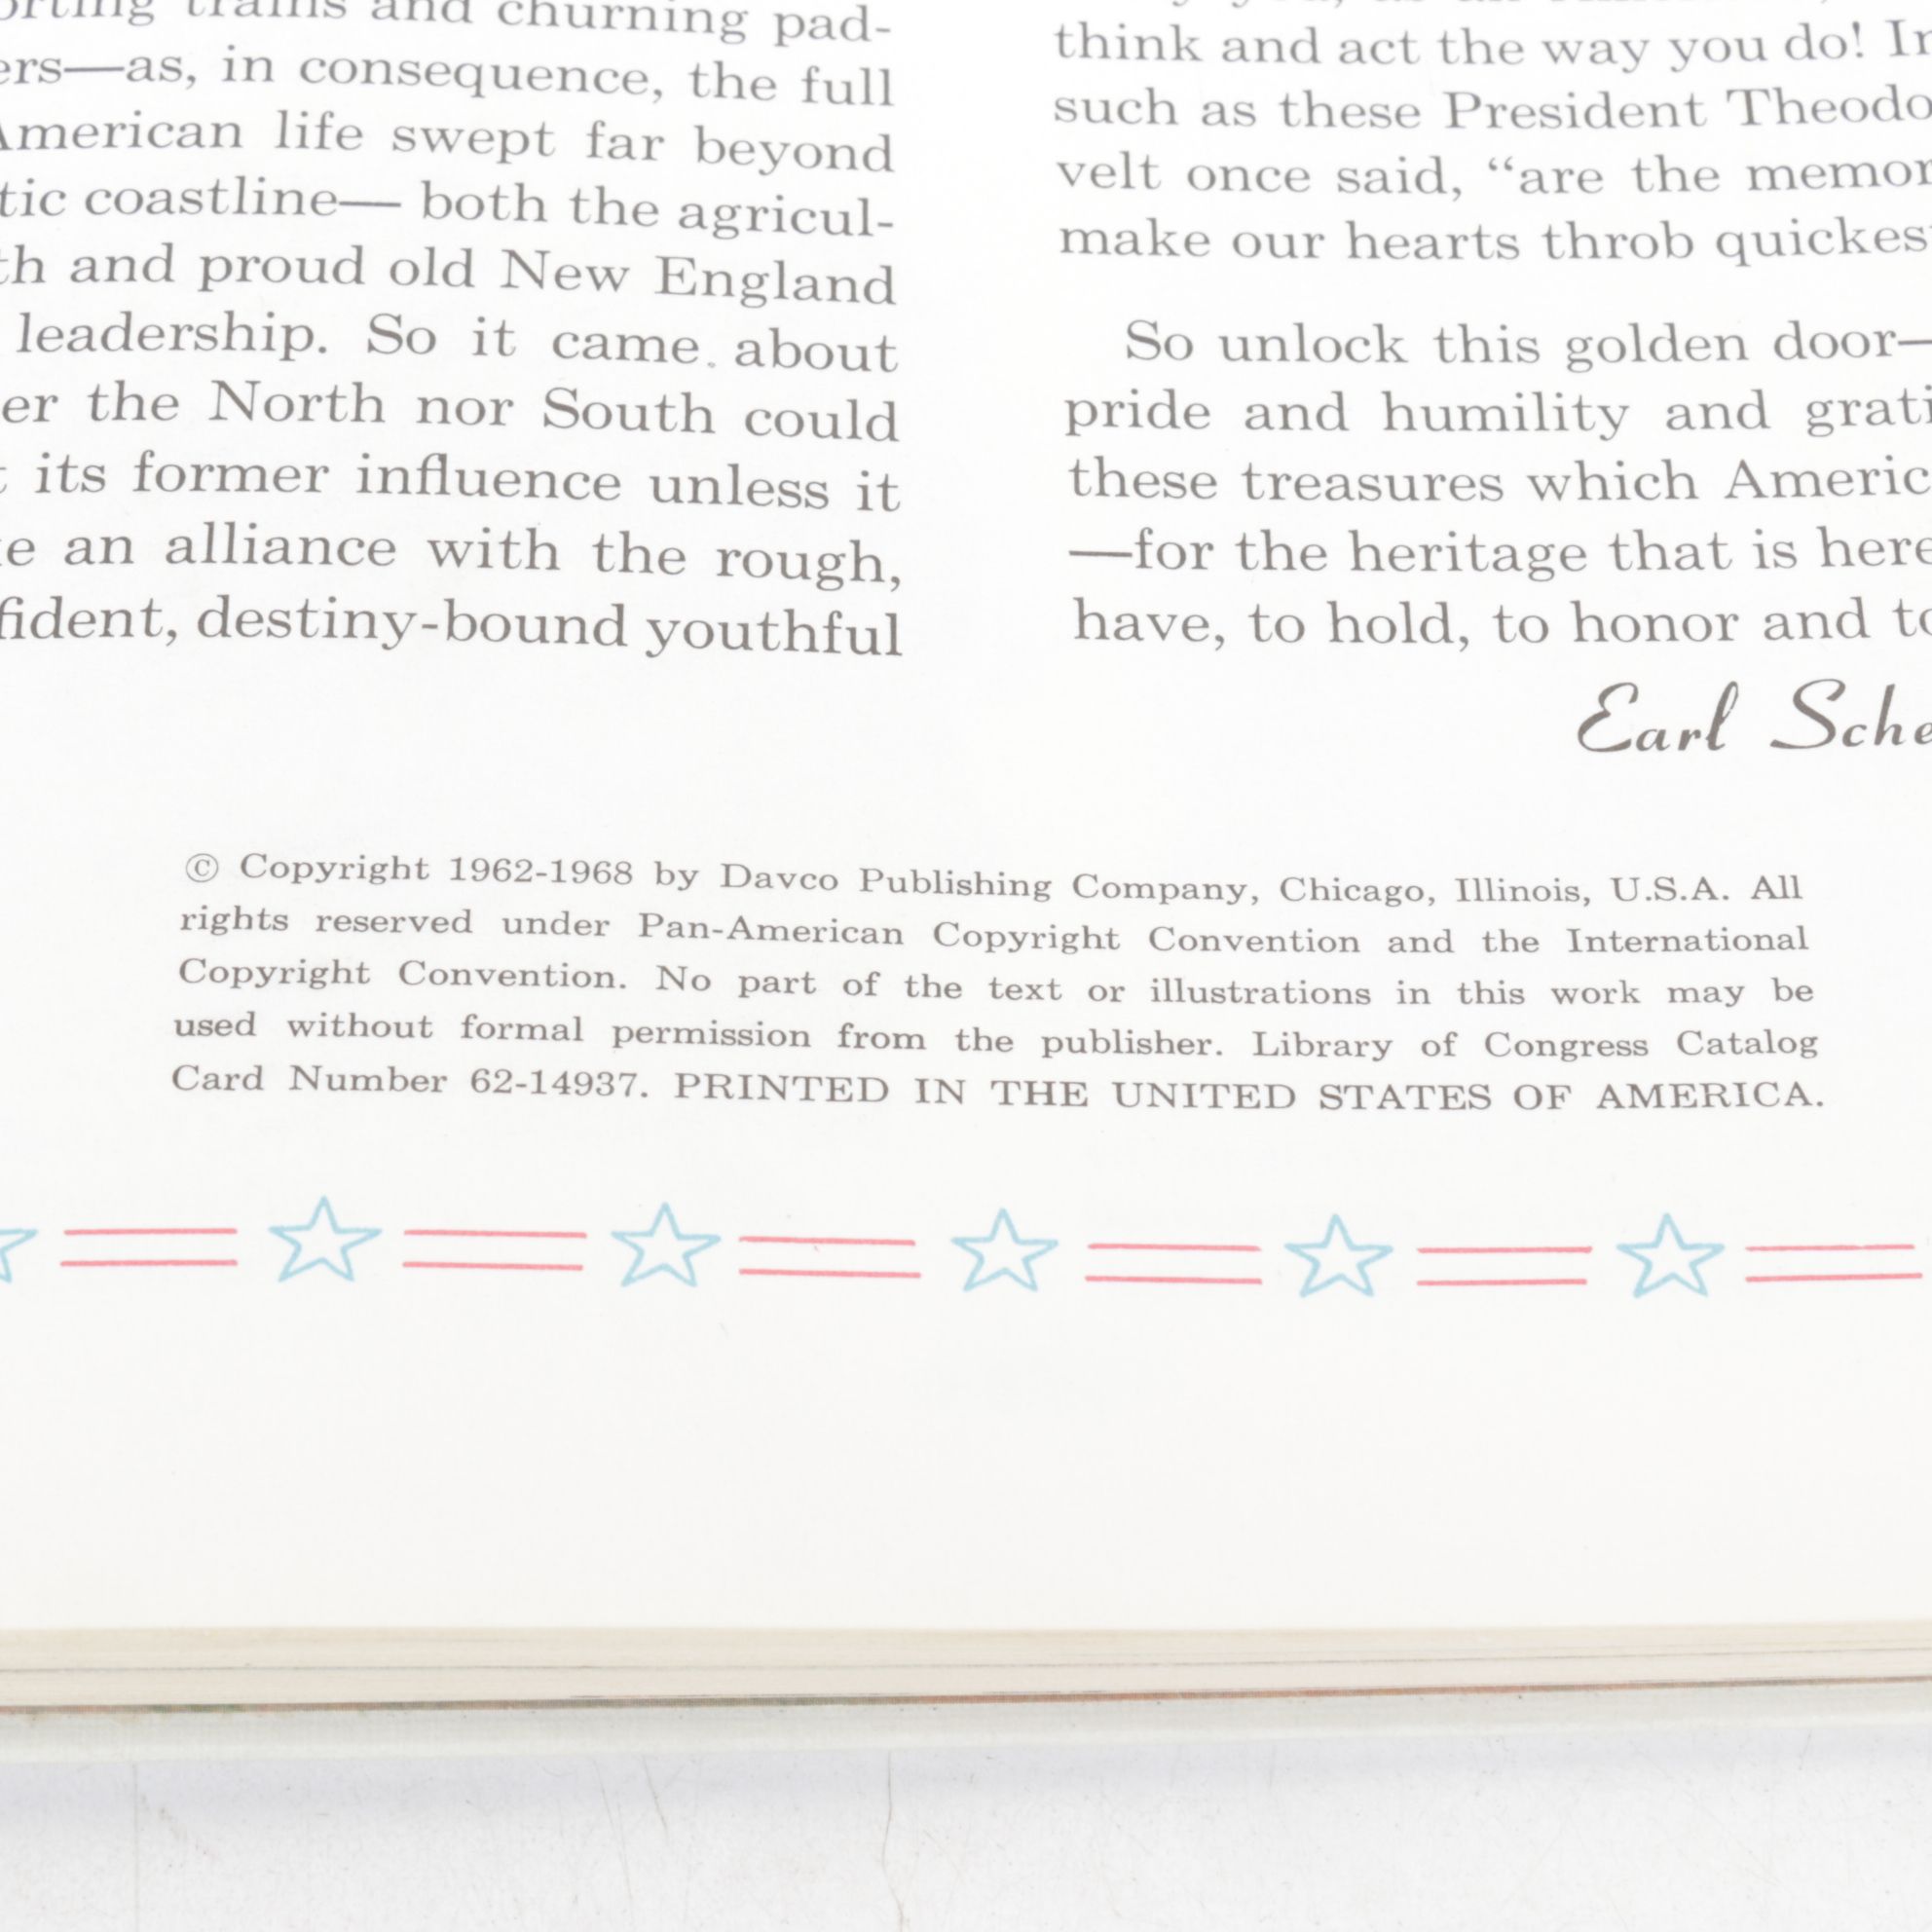 trains and churning pad-
ers—as, in consequence, the full
American life swept far beyond
tic coastline— both the agricul-
th and proud old New England
leadership. So it came about
er the North nor South could
its former influence unless it
e an alliance with the rough,
fident, destiny-bound youthful
think and act the way you do! In
such as these President Theodo
velt once said, “are the memor
make our hearts throb quickest
So unlock this golden door—
pride and humility and grati
these treasures which Americ
—for the heritage that is here
have, to hold, to honor and to
Earl Sche
© Copyright 1962-1968 by Davco Publishing Company, Chicago, Illinois, U.S.A. All
rights reserved under Pan-American Copyright Convention and the International
Copyright Convention. No part of the text or illustrations in this work may be
used without formal permission from the publisher. Library of Congress Catalog
Card Number 62-14937. PRINTED IN THE UNITED STATES OF AMERICA.